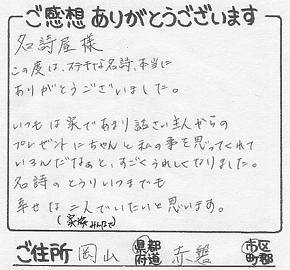 ご感想ありがとうございます
名詩屋様
この度は、ステキな名詩、本当に
ありがとうございました。
いつもは家であまり話さい主人からの
プレゼントにちゃんと私の事を思ってくれて
いるんだなぁと、すごくうれしくなりました。
名詩のとうりいつまでも
幸せは二人でいたいと思います。
(家族みんなで)
ご住所 岡山 県都府道 赤磐 市区町郡